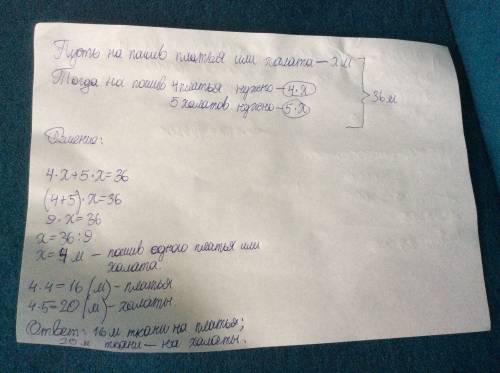 Пусть на пошив платья или халата – х м
Тогда на пошив 4 платья нужно – 4·х
5 халатов нужно – 5·х
36 м
Решение:
4·х+5·х=36
(4+5)·х=36
9·х=36
х=36:9
х=4 м – пошив одного платья или
халата.
4·4=16 (м) – платья
4·5=20 (м) – халаты
Ответ: 16 м ткани на платья;
20 м ткани – на халаты.